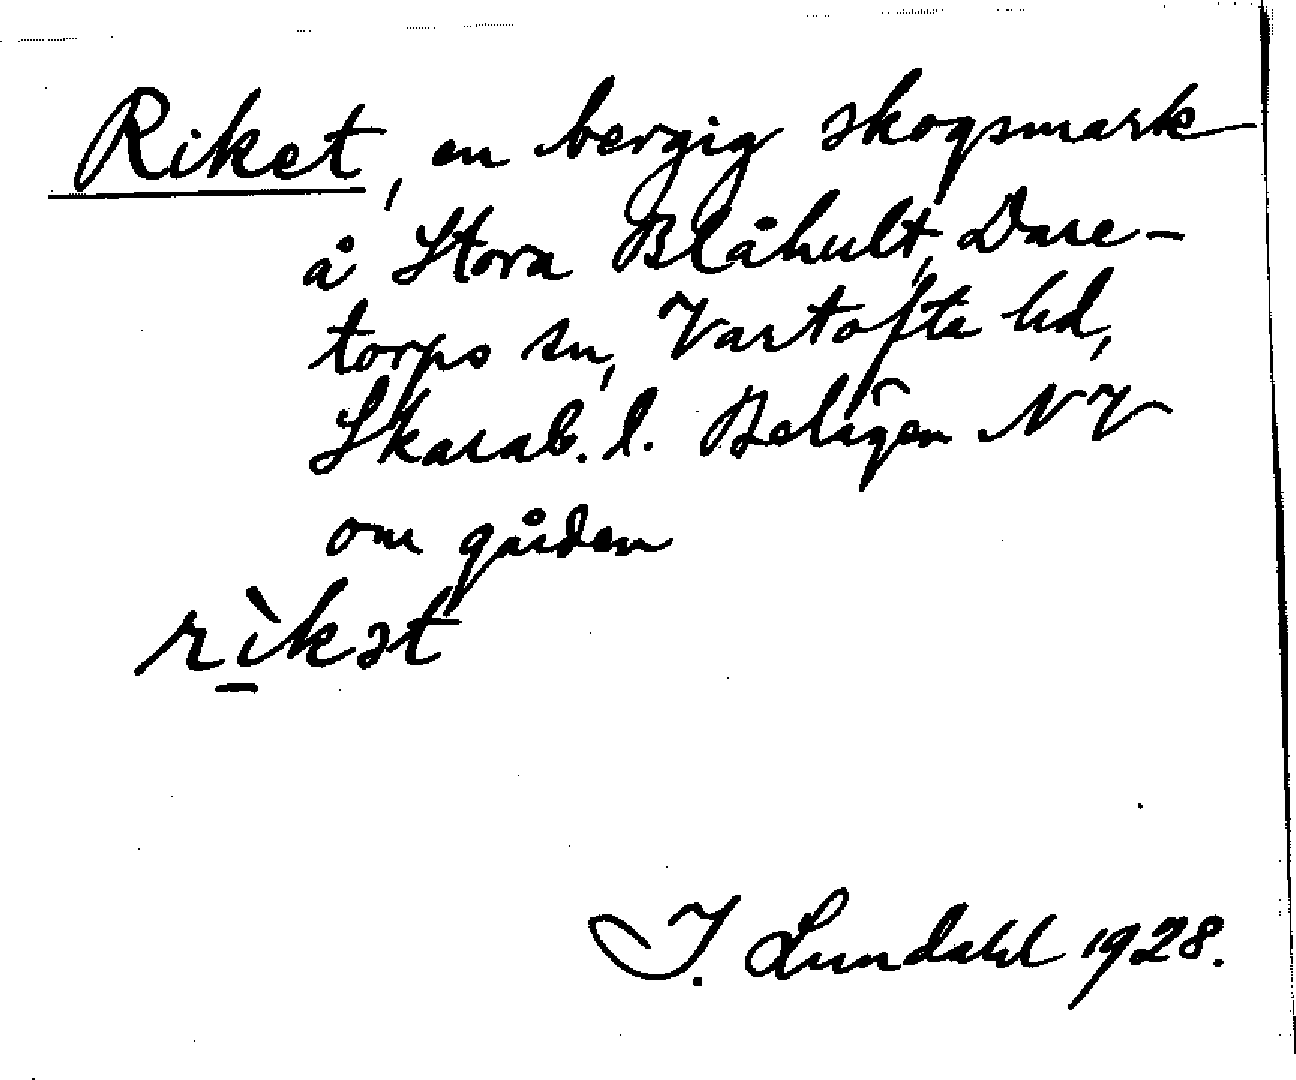 Riket, en bergig skogsmark
å Stora Blåhult, Dare-
torps sn, Vartofta hd,
Skarab. l. Belägen NV
om gården
rìkət
I. Lundahl 1928.